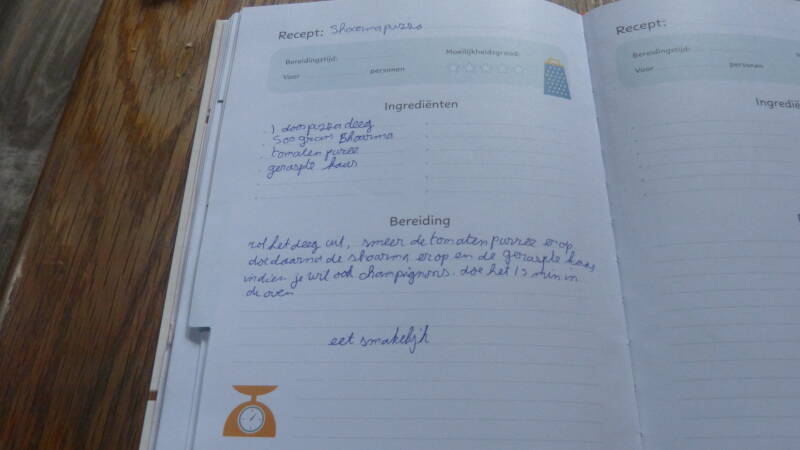 Recept: Shoarmapizza
Bereidingstijd:
Moeilijkheidsgraad:
Voor personen
Ingrediënten
1 doos pizza deeg
500 gram Shoarma
tomaten puree
geraspte kaas
Bereiding
rol het deeg uit, smeer de tomaten purree erop
doe daarna de shoarma erop en de geraspte kaas
indien je wil ook champignons. doe het 15 min in
de oven
eet smakelijk
Recept:
Bereidingstijd:
Voor personen
Ingredië